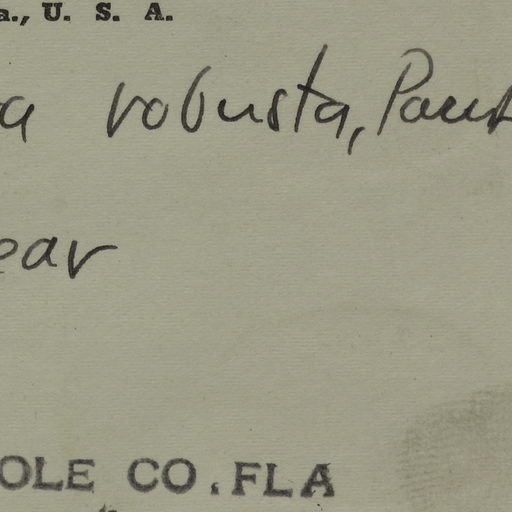 a., U. S. A.
a robusta,
ear
OLE CO. FLA